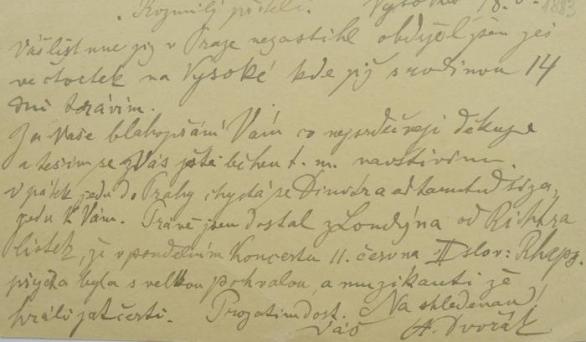 Rozmilý příteli! Vysoká 18.
1883
Váš list mne již v Praze nezastihl obdržel jsem jej
ve čtvrtek na Vysoké kde již s rodinou 14
dní trávím.
Za Vaše blahopřání Vám co nejsrdečněji děkuje
a těším se že Vás ještě během t. m. navštívím.
V pátek jedu do Prahy chystá se Dinora a
jedu k Vám. Právě jsem dostal z Londýna od Richtra
lístek, že v pondělním koncertu 11. června II slov: Rhaps.
přijata byla s velkou pochvalou, a muzikanti že
hráli jak čerti. Prozatím dost. Na shledanou!
Váš A. Dvořák